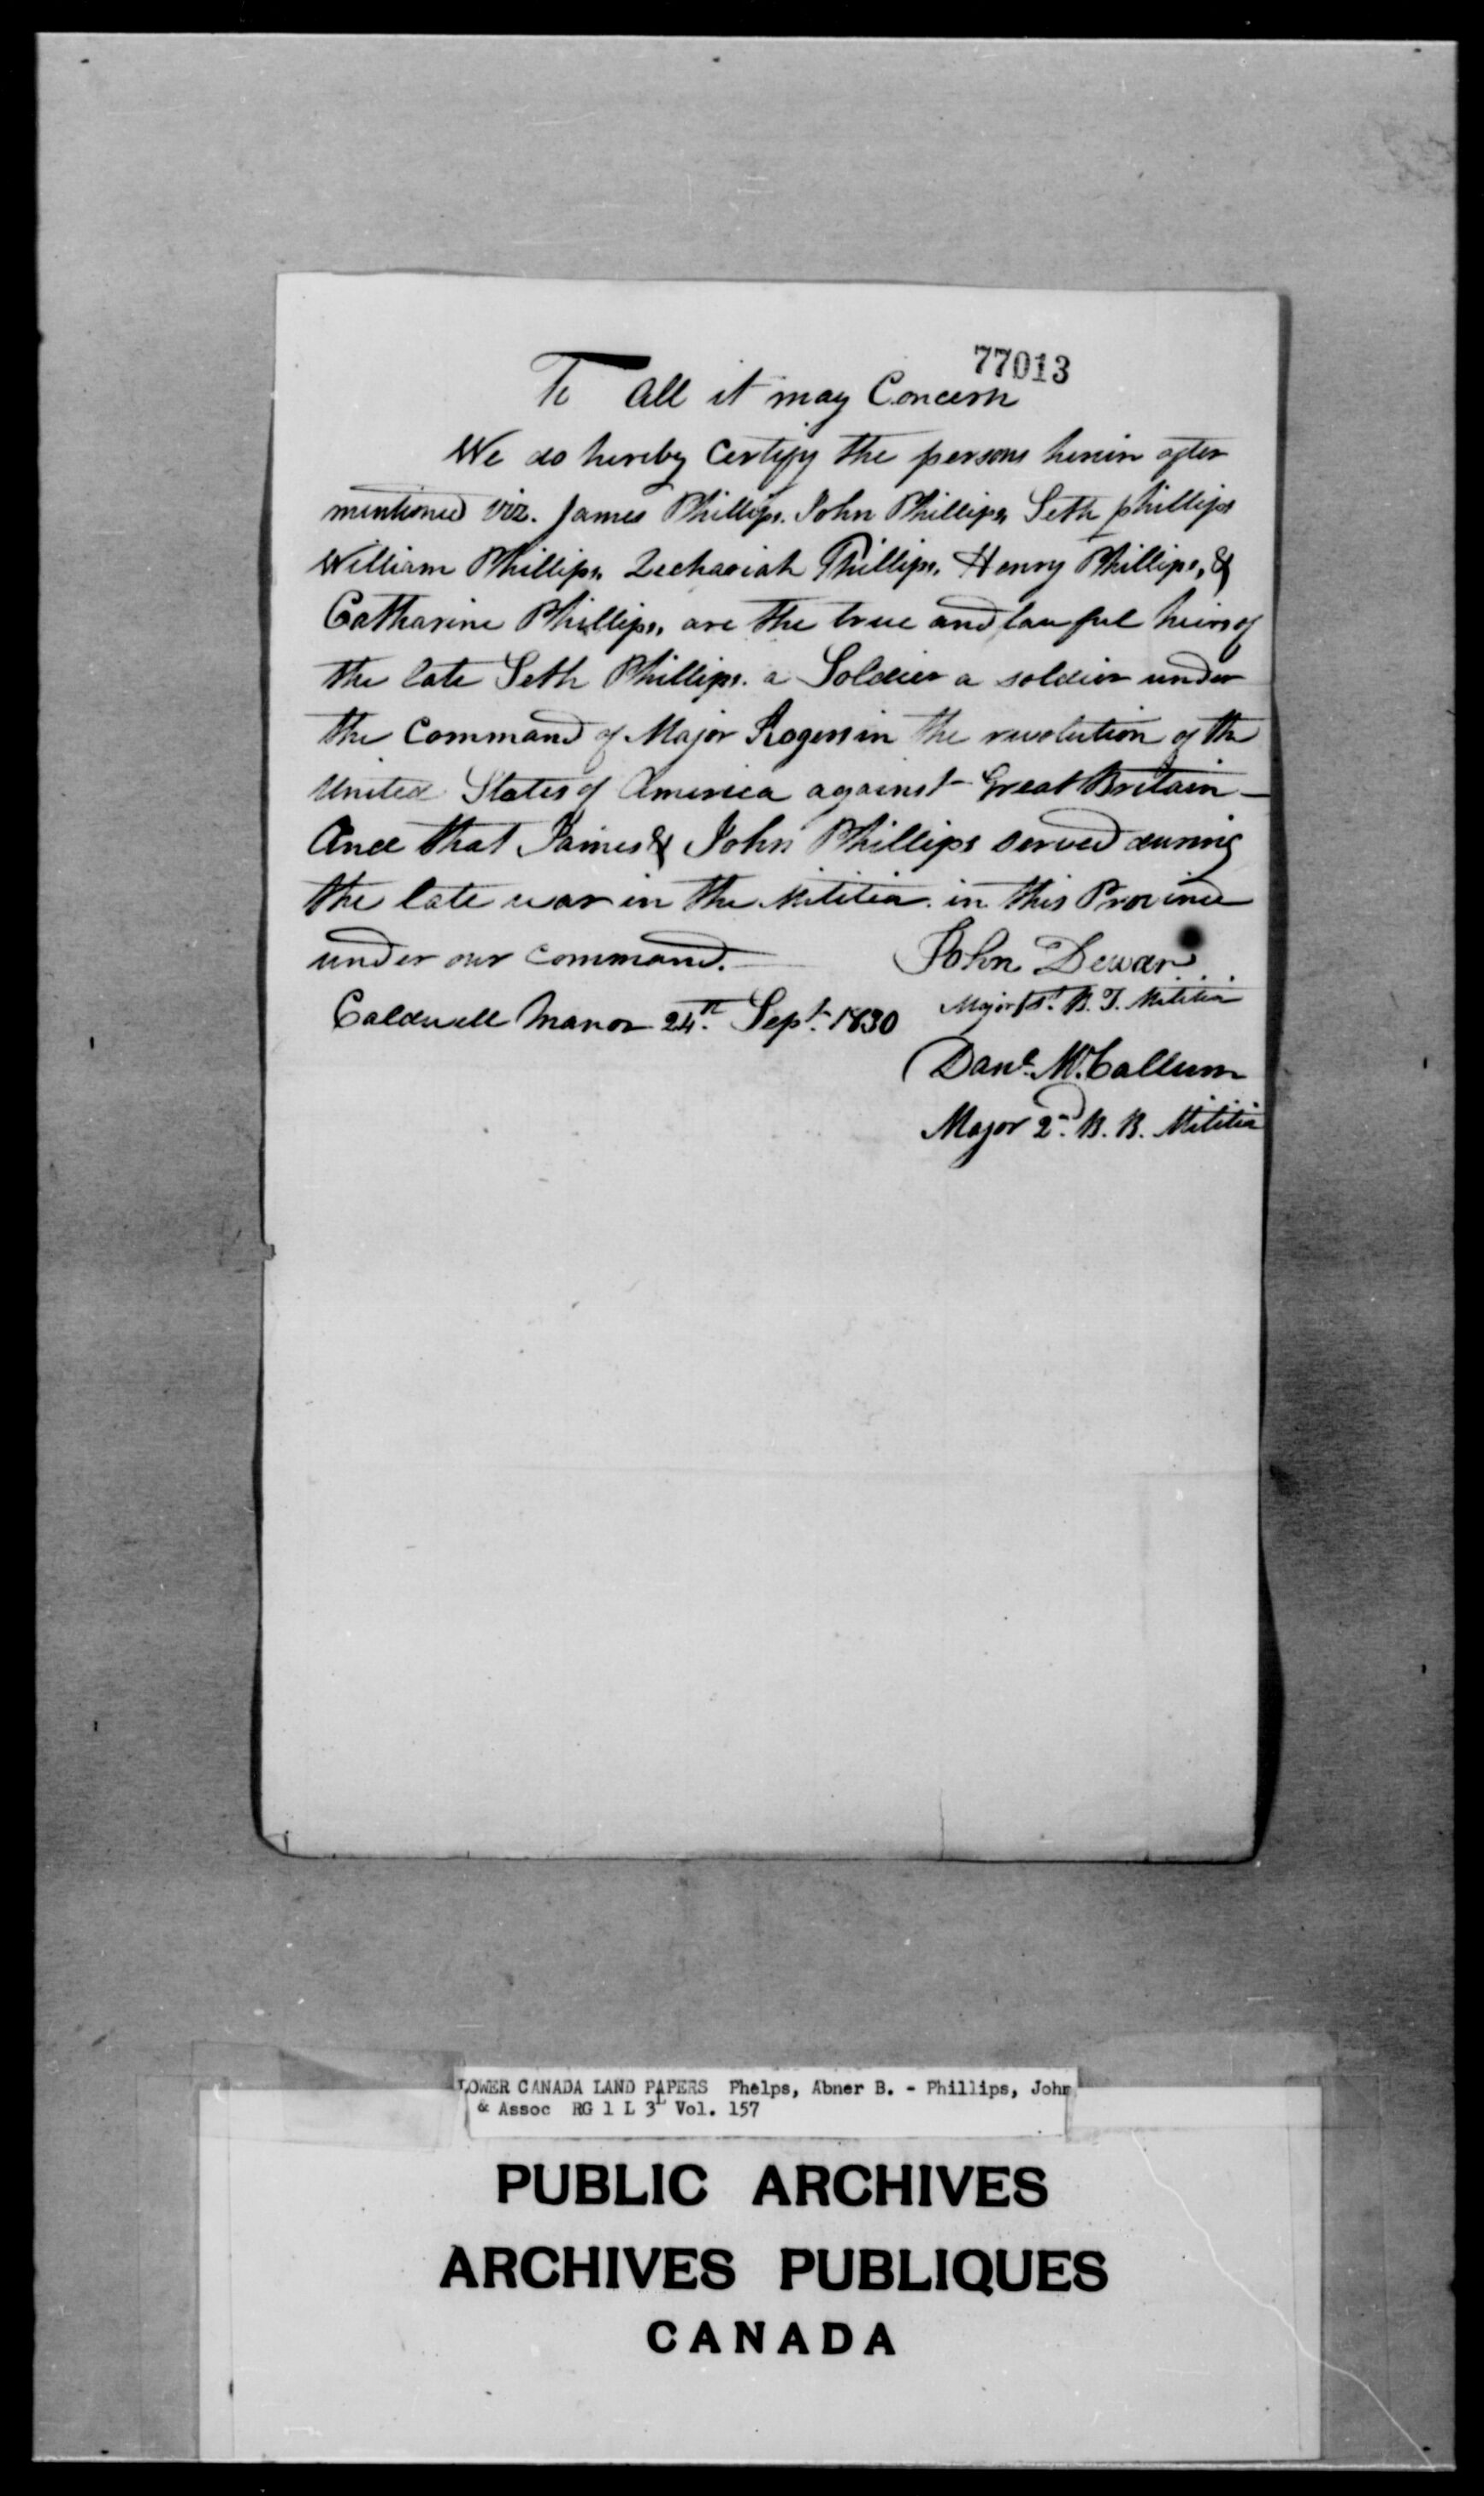 77013
To All it may Concern
We do hereby Certify the persons herein after
mentioned viz. James Phillips. John Phillips, Seth phillips
William Phillips, Zechariah Phillips, Henry Phillips, &
Catharine Phillips, are the true and lawful heirs of
the late Seth Phillips. a Soldier a soldier under
the Command of Major Rogers in the revolution of the
United States of America against Great Britain —
And that James & John Phillips served during
the late war in the Militia in this Province
under our Command. —
John Dewar
Major 1st. B. T. Militia
Caldwell Manor 24th. Sept. 1830
Danl. McCallum
Major 2nd. B. B. Militia
LOWER CANADA LAND PAPERS Phelps, Abner B. - Phillips, John
& Assoc RG 1 L 3L Vol. 157
PUBLIC ARCHIVES
ARCHIVES PUBLIQUES
CANADA